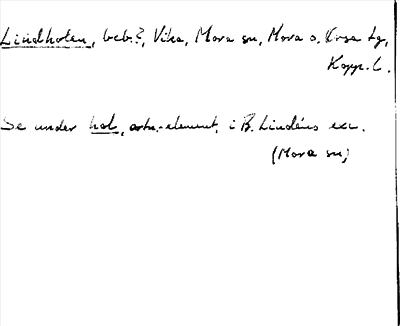 Lindholen, beb.?, Vika, Mora sn, Mora o. Orsa tg,
Kopp. l.
Se under hol, ortn.-element, i B. Lindéns exc.
(Mora sn)